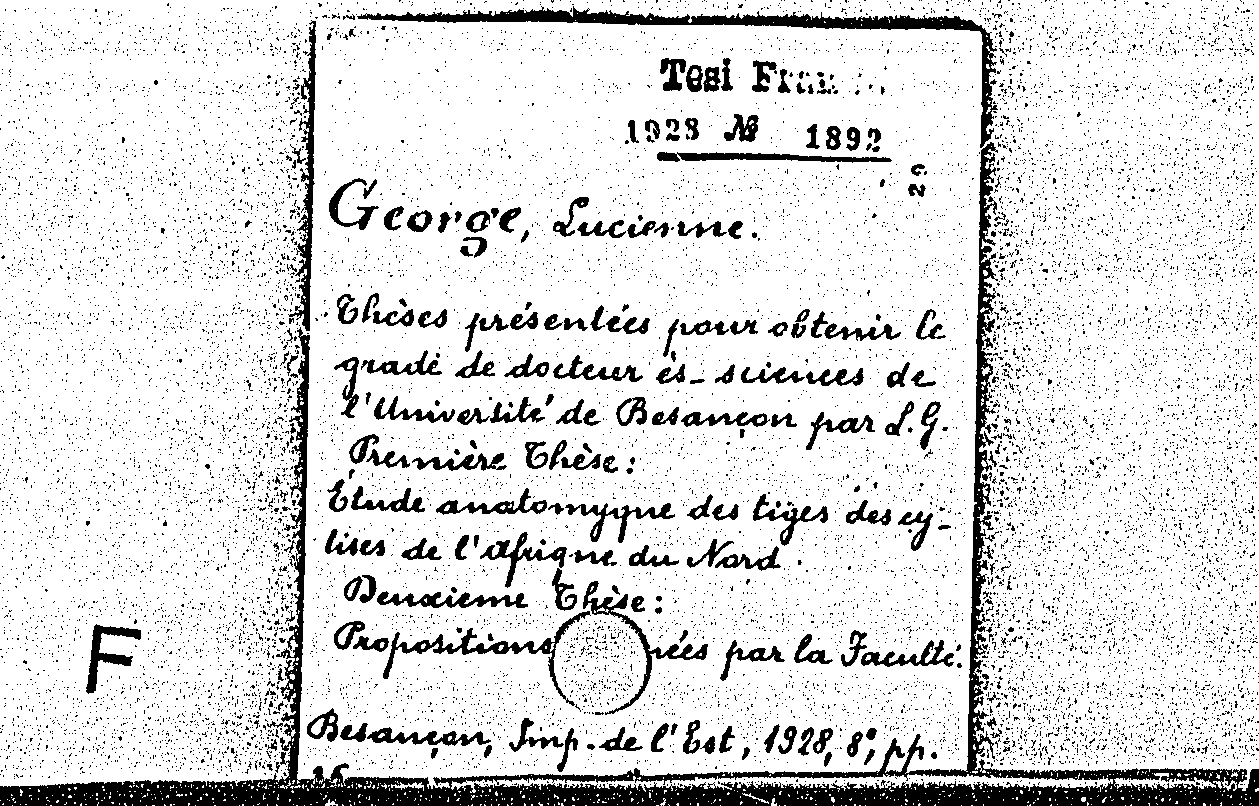 Tesi
1928 № 1892
29
George, Lucienne.
Thèses présentées pour obtenir le
grade de docteur ès-sciences de
l'Université de Besançon par L.G.
Première Thèse:
Étude anatomyque des tiges des cy-
tises de l'Afrique du Nord.
Deuxieme Thèse:
Propositions nées par la Faculté.
F
Besançon, Imp. de l'Est, 1928, 8°, pp.